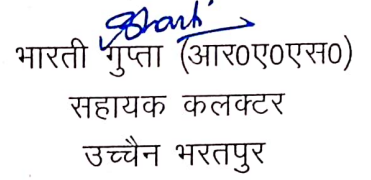 Bharti
भारती गुप्ता (आर0ए0एस0)
सहायक कलक्टर
उच्चैन भरतपुर